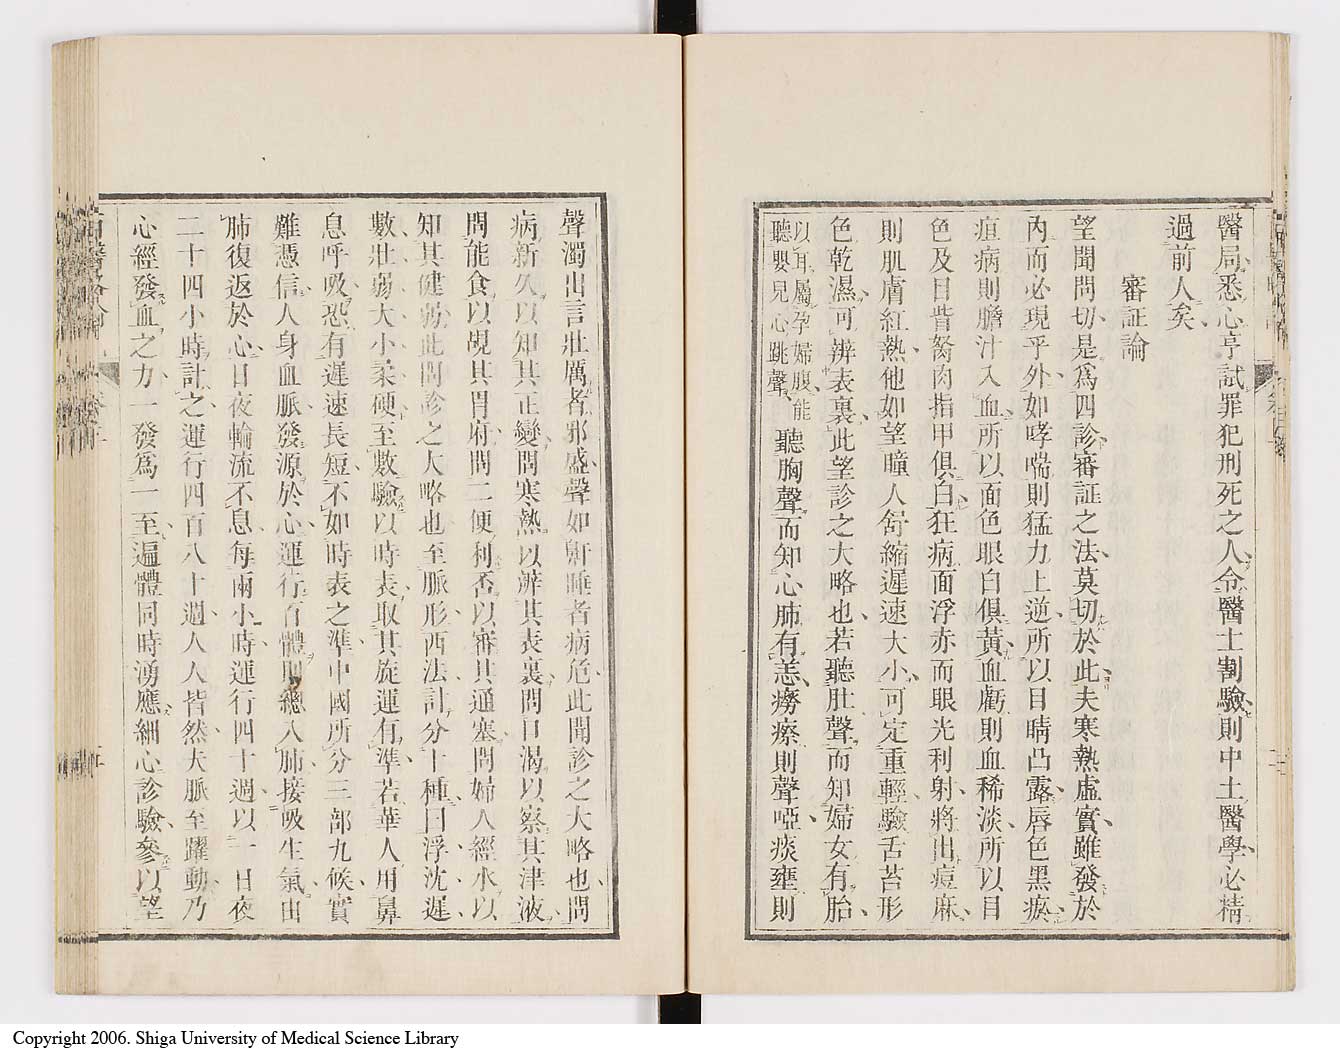 醫局悉心亭試罪犯刑死之人令醫士割驗則中土醫學必精
過前人矣
審証論
望聞問切是爲四診審証之法莫切於此夫寒熱虛實雖發於
內而必現乎外如哮喘則猛力上逆所以目睛凸露唇色黑瘀
疸病則膽汁入血所以面色眼白俱黃血虧則血稀淡所以目
色及目眥胬肉指甲俱白狂病面浮赤而眼光利射將出痘麻
則肌膚紅熱他如望瞳人舒縮遲速大小可定重輕驗舌苔形
色乾濕可辨表裏此望診之大略也若聽肚聲而知婦女有胎
以耳屬孕婦腹能
聽嬰兒心跳聲
聽胸聲而知心肺有恙癆瘵則聲啞痰壅則
聲濁出言壯厲者邪盛聲如鼾睡者病危此聞診之大略也問
病新久以知其正變問寒熱以辨其表裏問口渴以察其津液
問能食以覘其胃府問二便利否以審其通塞問婦人經水以
知其健弱此問診之大略也至脈形西法計分十種曰浮沈遲
數壯弱大小柔硬至數驗以時表取其旋運有準若華人用鼻
息呼吸恐有遲速長短不如時表之準中國所分三部九候實
難憑信人身血脈發源於心運行百體則總入肺接吸生氣由
肺復返於心日夜輪流不息每兩小時運行四十週以一日夜
二十四小時計之運行四百八十週人人皆然夫脈至躍動乃
心經發血之力一發爲一至遍體同時湧應細心診驗參以望
Copyright 2006. Shiga University of Medical Science Library